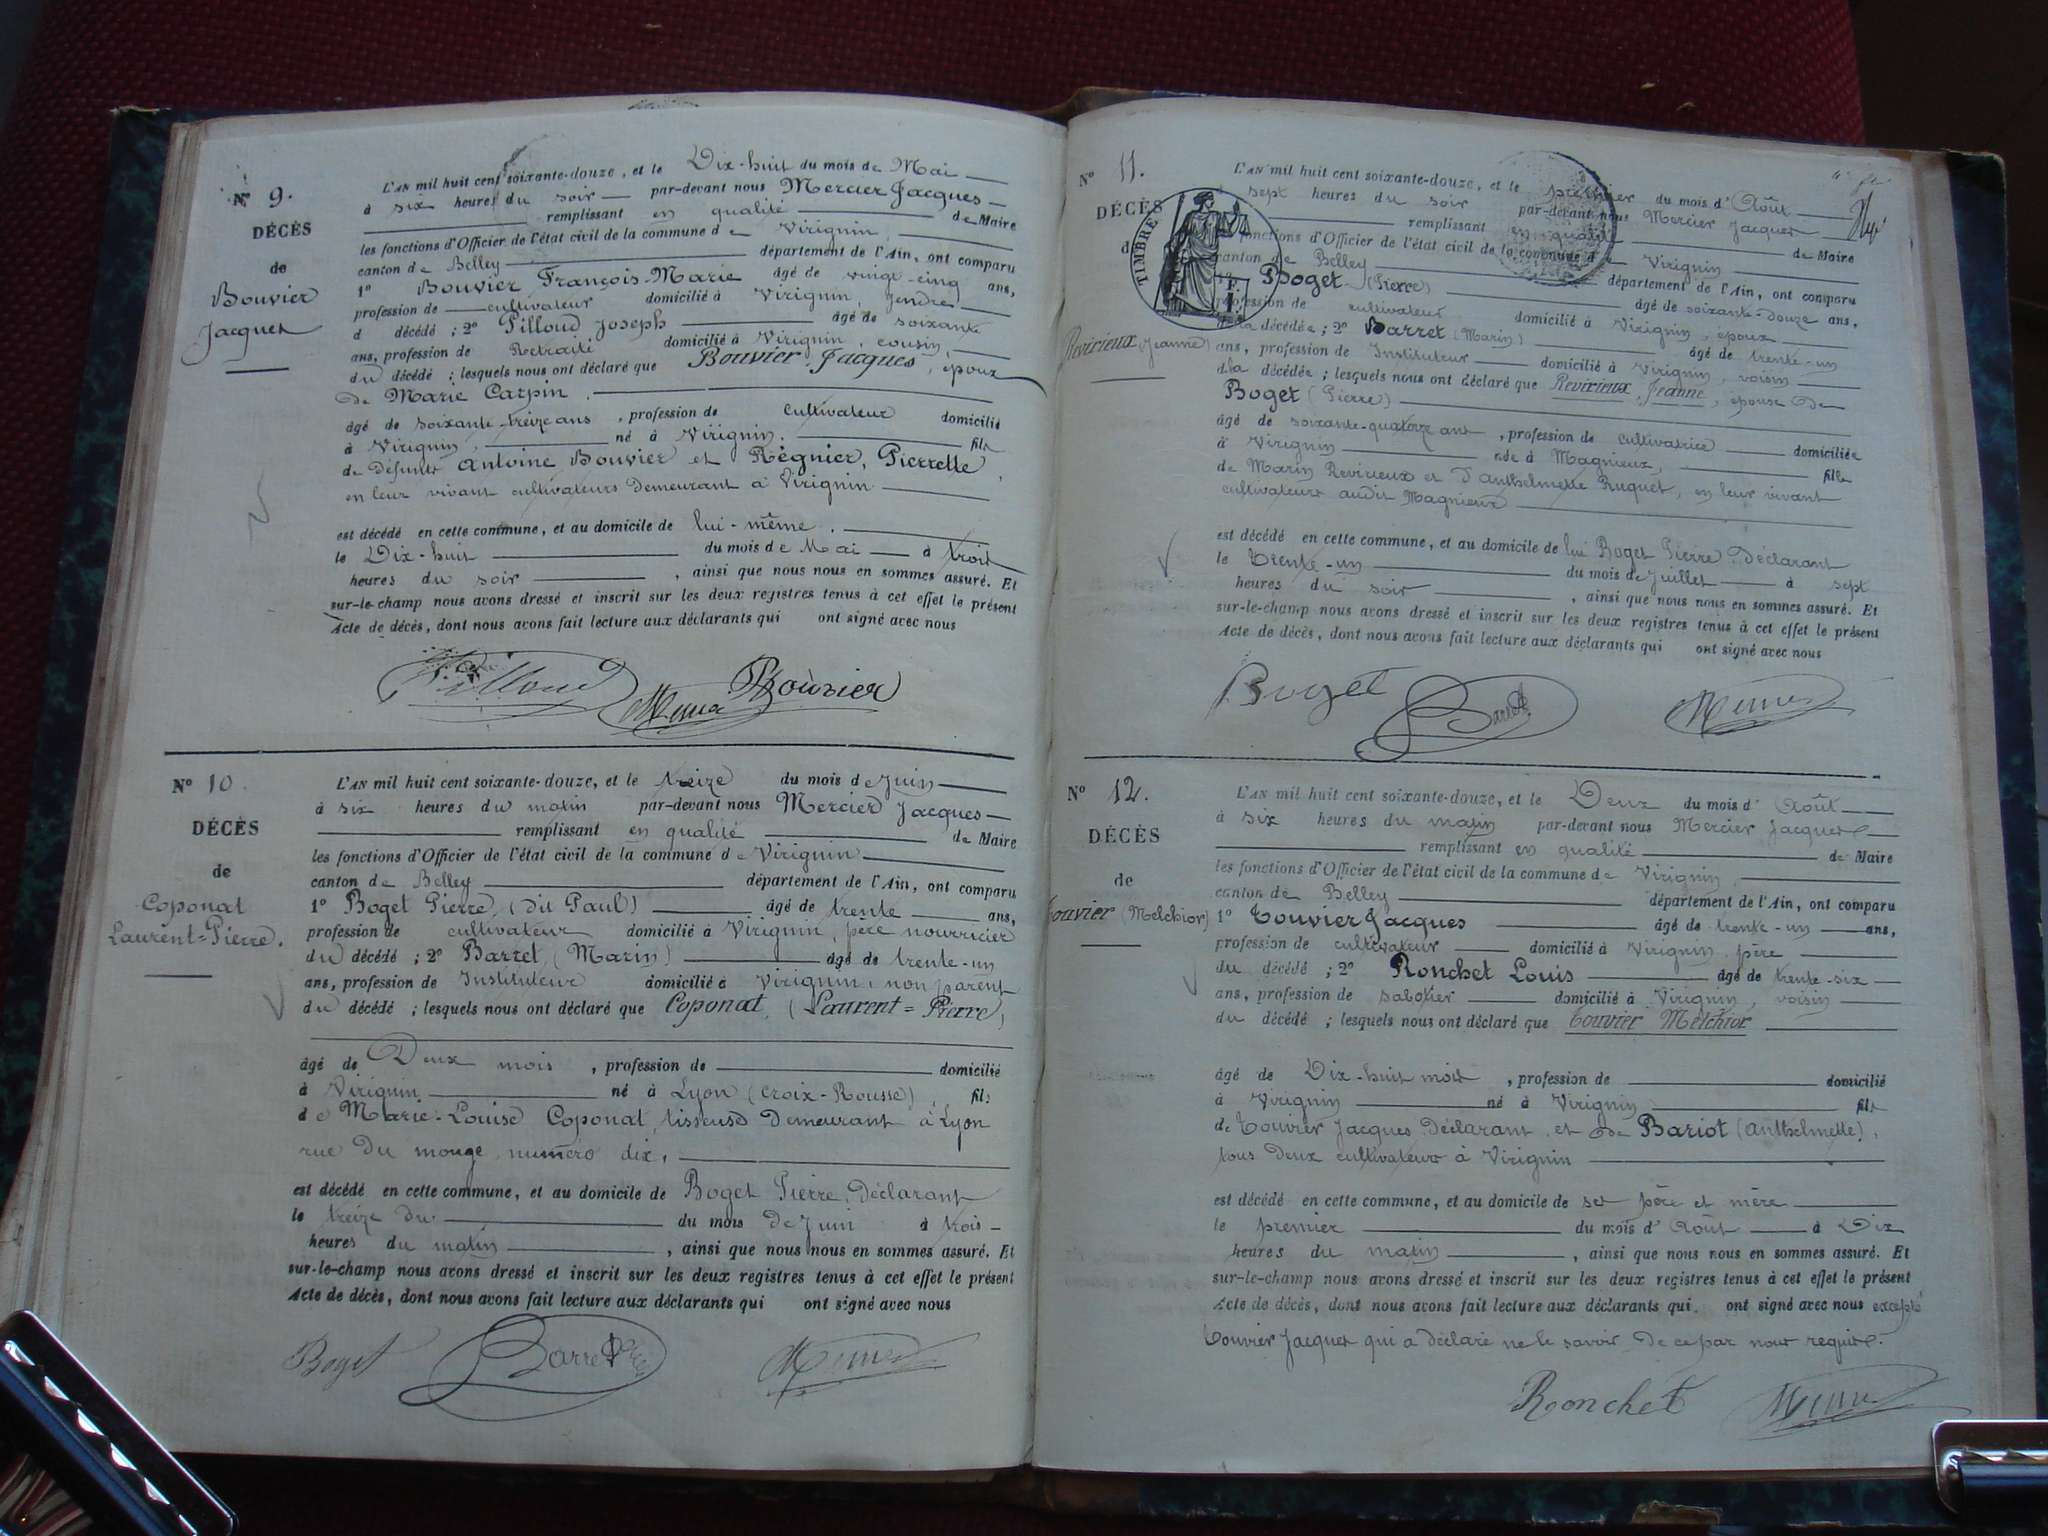 N° 9.
DÉCÈS
de
Bouvier
Jacques
L'AN mil huit cent soixante-douze, et le Dix-huit du mois de Mai
à six heures du soir par-devant nous Mercier Jacques
remplissant en qualité de Maire
les fonctions d'Officier de l'état civil de la commune de Virignin
canton de Belley département de l'Ain, ont comparu
1° Bouvier François-Marie âgé de vingt-cinq ans,
profession de cultivateur domicilié à Virignin, gendre
d décédé ; 2° Pilloud Joseph âgé de soixante
ans, profession de Retraité domicilié à Virignin, cousin,
du décédé ; lesquels nous ont déclaré que Bouvier Jacques, époux
de Marie Carpin.
âgé de soixante-treize ans, profession de cultivateur domicilié
à Virignin, né à Virignin. fils
de défunts Antoine Bouvier et Régnier, Pierrette,
en leur vivant cultivateurs demeurant à Virignin
est décédé en cette commune, et au domicile de lui-même.
le Dix-huit du mois de Mai à trois
heures du soir, ainsi que nous nous en sommes assuré. Et
sur-le-champ nous avons dressé et inscrit sur les deux registres tenus à cet effet le présent
Acte de décès, dont nous avons fait lecture aux déclarants qui ont signé avec nous
Pilloud Mercier Bouvier
N° 10.
DÉCÈS
de
Coponat
Laurent=Pierre.
L'AN mil huit cent soixante-douze, et le treize du mois de Juin
à six heures du matin par-devant nous Mercier Jacques
remplissant en qualité de Maire
les fonctions d'Officier de l'état civil de la commune de Virignin
canton de Belley département de l'Ain, ont comparu
1° Boget Pierre, (dit Paul) âgé de trente ans,
profession de cultivateur domicilié à Virignin, père nourricier
du décédé ; 2° Barret, (Marin) âgé de trente-un
ans, profession de Instituteur domicilié à Virignin, non parent
du décédé ; lesquels nous ont déclaré que Coponat, (Laurent=Pierre)
âgé de Deux mois, profession de domicilié
à Virignin né à Lyon (Croix-Rousse), fils
de Marie-Louise Coponat, tisseuse demeurant à Lyon
rue du mouge, numéro dix,
est décédé en cette commune, et au domicile de Boget Pierre, Déclarant
le treize du du mois de Juin à trois
heures du matin, ainsi que nous nous en sommes assuré. Et
sur-le-champ nous avons dressé et inscrit sur les deux registres tenus à cet effet le présent
Acte de décès, dont nous avons fait lecture aux déclarants qui ont signé avec nous
Boget Barret Mercier
N° 11.
DÉCÈS
d
Revirieux (Jeanne)
TIMBRE
L'AN mil huit cent soixante-douze, et le premier du mois d'Août
sept heures du soir par-devant nous Mercier Jacques
remplissant en qualité de Maire
fonctions d'Officier de l'état civil de la commune de Virignin
canton de Belley département de l'Ain, ont comparu
Boget (Pierre) âgé de soixante-douze ans,
profession de cultivateur domicilié à Virignin, époux
de la décédée ; 2° Barret (Marin) âgé de trente-un
ans, profession de Instituteur domicilié à Virignin, voisin
d la décédée ; lesquels nous ont déclaré que Revirieux Jeanne, épouse de
Boget (Pierre)
âgé de soixante-quatorze ans, profession de cultivatrice domiciliée
à Virignin née à Magnieux, fille
de Marin Revirieux et d'Anthelmette Ruquet, en leur vivant
cultivateurs audit Magnieux
est décédé en cette commune, et au domicile de lui Boget Pierre Déclarant
le Trente-un du mois de Juillet à sept
heures du soir, ainsi que nous nous en sommes assuré. Et
sur-le-champ nous avons dressé et inscrit sur les deux registres tenus à cet effet le présent
Acte de décès, dont nous avons fait lecture aux déclarants qui ont signé avec nous
Boget Barret Mercier
N° 12.
DÉCÈS
de
Touvier (Melchior)
L'AN mil huit cent soixante-douze, et le Deux du mois d'Août
à six heures du matin par-devant nous Mercier Jacques
remplissant en qualité de Maire
les fonctions d'Officier de l'état civil de la commune de Virignin
canton de Belley département de l'Ain, ont comparu
1° Touvier Jacques âgé de trente-un ans,
profession de cultivateur domicilié à Virignin père
du décédé ; 2° Ronchet Louis âgé de trente-six
ans, profession de sabotier domicilié à Virignin, voisin
du décédé ; lesquels nous ont déclaré que Touvier Melchior
âgé de Dix-huit mois, profession de domicilié
à Virignin né à Virignin fils
de Touvier Jacques, Déclarant, et de Bariot (Anthelmette),
tous deux cultivateurs à Virignin
est décédé en cette commune, et au domicile de ses père et mère
le premier du mois d'Août à Dix
heures du matin, ainsi que nous nous en sommes assuré. Et
sur-le-champ nous avons dressé et inscrit sur les deux registres tenus à cet effet le présent
Acte de décès, dont nous avons fait lecture aux déclarants qui ont signé avec nous excepté
Touvier Jacques qui a déclaré ne le savoir de ce par nous requis.
Ronchet Mercier